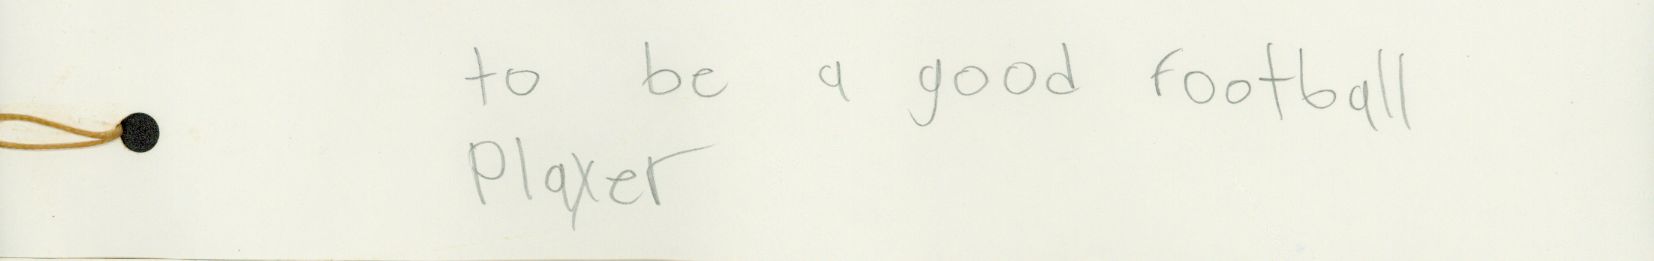 to be a good football
Player